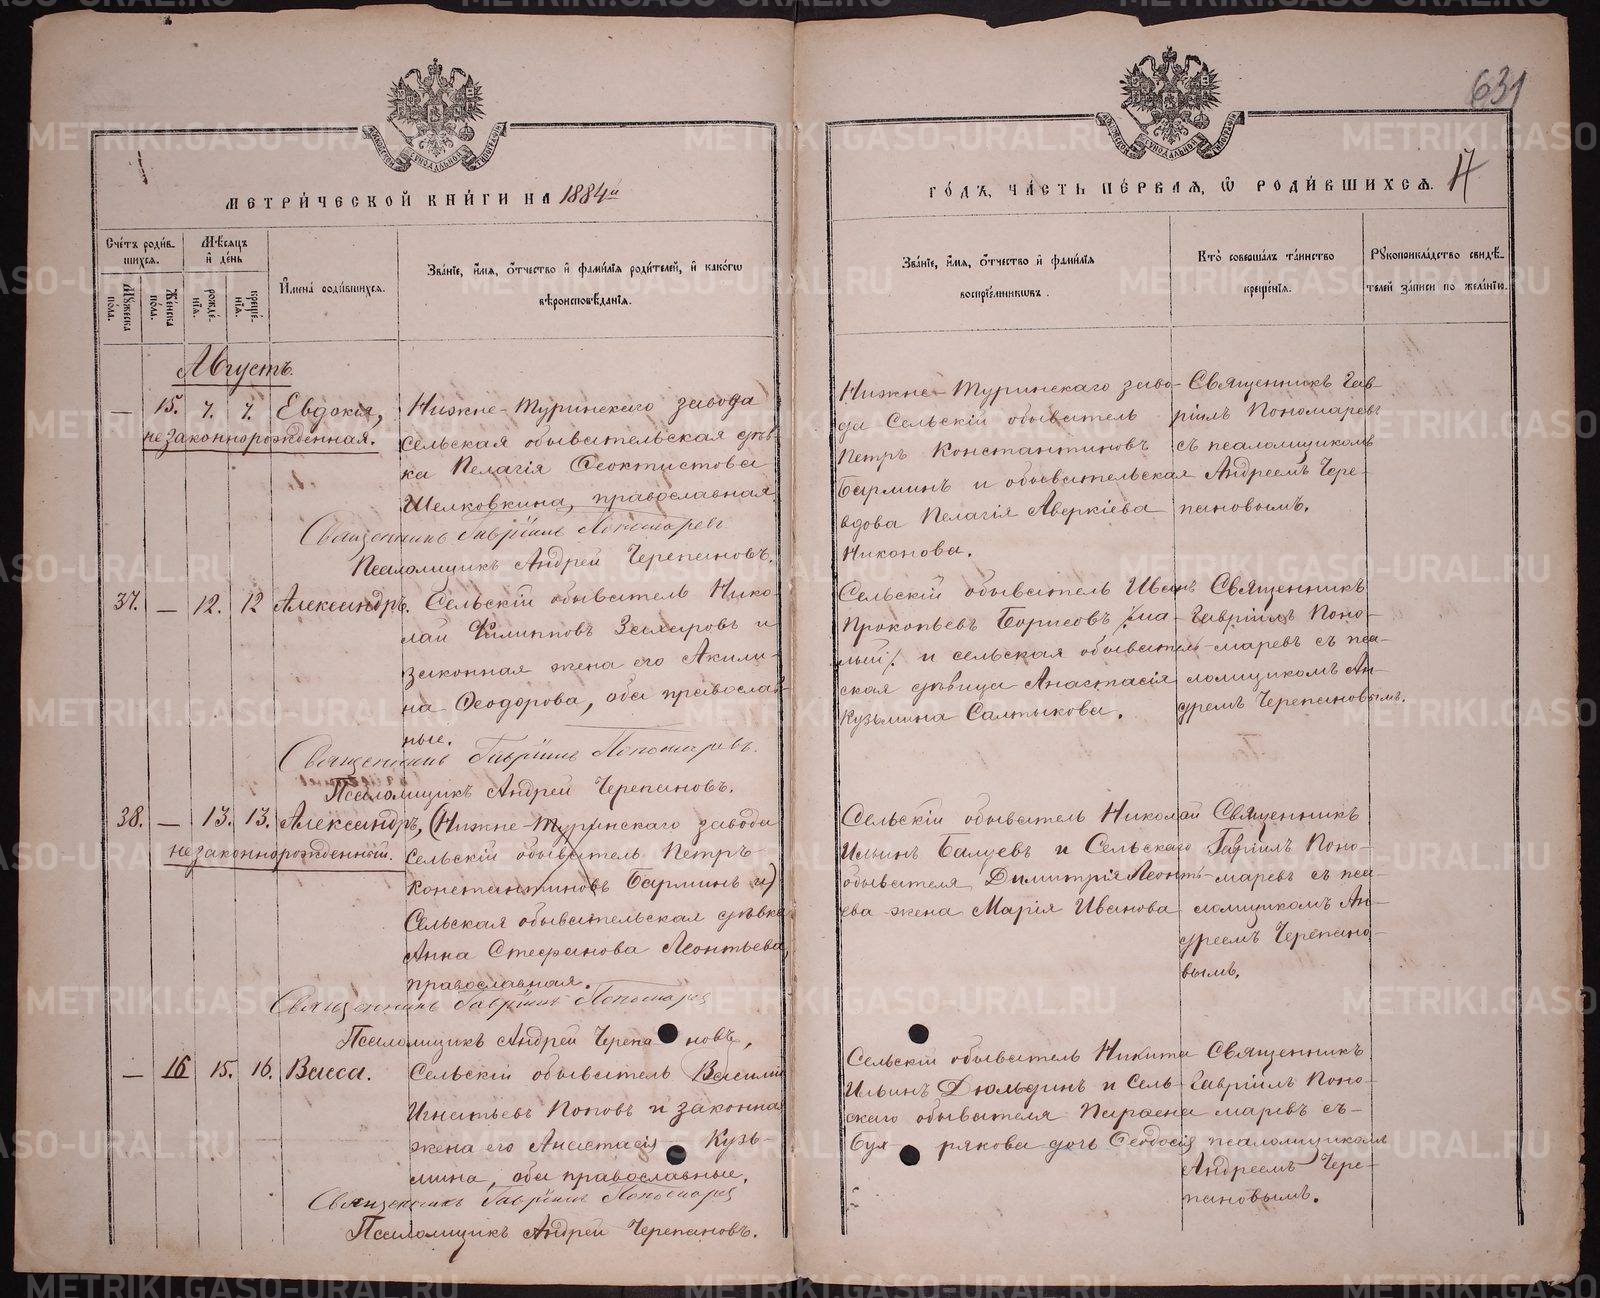 631
МЕТРИ́ЧЕСКОЙ КНИ́ГИ НА 1884й
ГО́ДЪ, ЧА́СТЬ ПЕ́РВАЯ, Ѡ РОДИ́ВШИХСЯ.
Сче́тъ роди́в-
шихся.
Мѣ́сяцъ
и҆ де́нь
Мꙋжеска
пола.
Женска
пола.
рожде́-
нїѧ.
креще́-
нїѧ.
И҆мена̀ роди́вшихся.
Зва́нїе, и҆́мѧ, ѻ҆́тчество и҆ фами́лїѧ роди́телей, и҆ како́гѡ
вѣроисповѣ́данїѧ.
Зва́нїе, и҆́мѧ, ѻ҆́тчество и҆ фами́лїѧ
воспрїе́мникѡвъ.
Кто̀ соверша́лъ та́инство
креще́нїѧ.
Рꙋкоприкла́дство свидѣ́-
телей за́писи по жела́нїю.
Августъ.
— 15. 7. 7. Евдокія,
незаконнорожденная.
Нижне-Туринскаго завода
сельская обывательская дѣв-
ка Пелагія Ѳеоктистова
Шелковкина, православная
Священникъ Гавріилъ Пономаревъ
Псаломщикъ Андрей Черепановъ.
Нижне-Туринскаго заво-
да Сельскій обыватель
Петръ Константиновъ
Барминъ и обывательская
вдова Пелагія Аверкіева
Никонова.
Священникъ Гав-
ріилъ Пономаревъ
съ псаломщикомъ
Андреемъ Чере-
пановымъ.
37. — 12. 12 Александръ.
Сельскій обыватель Нико-
лай Филипповъ Захаровъ и
законная жена его Акили-
на Ѳеодорова, оба православ-
ные.
Священникъ Гавріилъ Пономаревъ.
Псаломщикъ Андрей Черепановъ.
Сельскій обыватель Иванъ
Прокопьевъ Борисовъ /ма-
лый/. и сельская обыватель-
ская дѣвица Анастасія
Кузьмина Салтыкова.
Священникъ
Гавріилъ Поно-
маревъ съ пса-
ломщикомъ Ан-
дреемъ Черепановымъ.
38. — 13. 13. Александръ,
незаконнорожденный.
(Нижне-Туринскаго завода
сельскій обыватель Петръ
Константиновъ Барминъ и)
Сельская обывательская дѣвка
Анна Стефанова Леонтьева,
православная.
Священникъ Гавріилъ Пономарев
Псаломщикъ Андрей Черепановъ.
Сельскій обыватель Николай
Ильинъ Балуевъ и Сельскаго
обывателя Димитрія Леонть-
ева жена Марія Иванова
Священникъ
Гавріилъ Поно-
маревъ съ пса-
ломщикомъ Ан-
дреемъ Черепано-
вымъ.
— 16 15. 16. Васса.
Сельскій обыватель Василій
Игнатьевъ Поповъ и законная
жена его Анастасія Кузь-
мина, оба православные.
Священникъ Гавріилъ Пономарев
Псаломщикъ Андрей Черепановъ.
Сельскій обыватель Никита
Ильинъ Дюльдинъ и Сель-
скаго обывателя Парѳена
Бурякова дочь Ѳеодосія
Священникъ
Гавріилъ Поно-
маревъ съ-
псаломщикомъ
Андреемъ Чере-
пановымъ.
METRIKI.GASO-URAL.RU